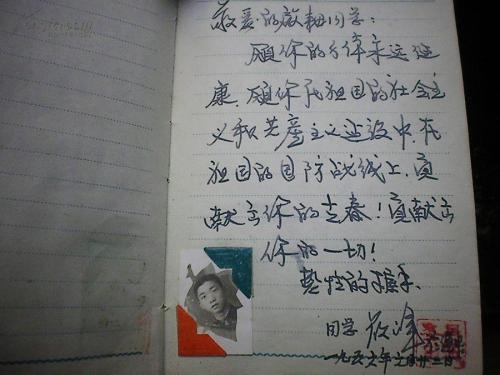 敬爱的 同学：
愿你的身体永远健
康 愿你在祖国的社会主
义和共产主义建设中，在
祖国的国防战线上，贡
献出你的青春！贡献出
你的一切！
热烈的握手
同学
一九五六年 月廿二日